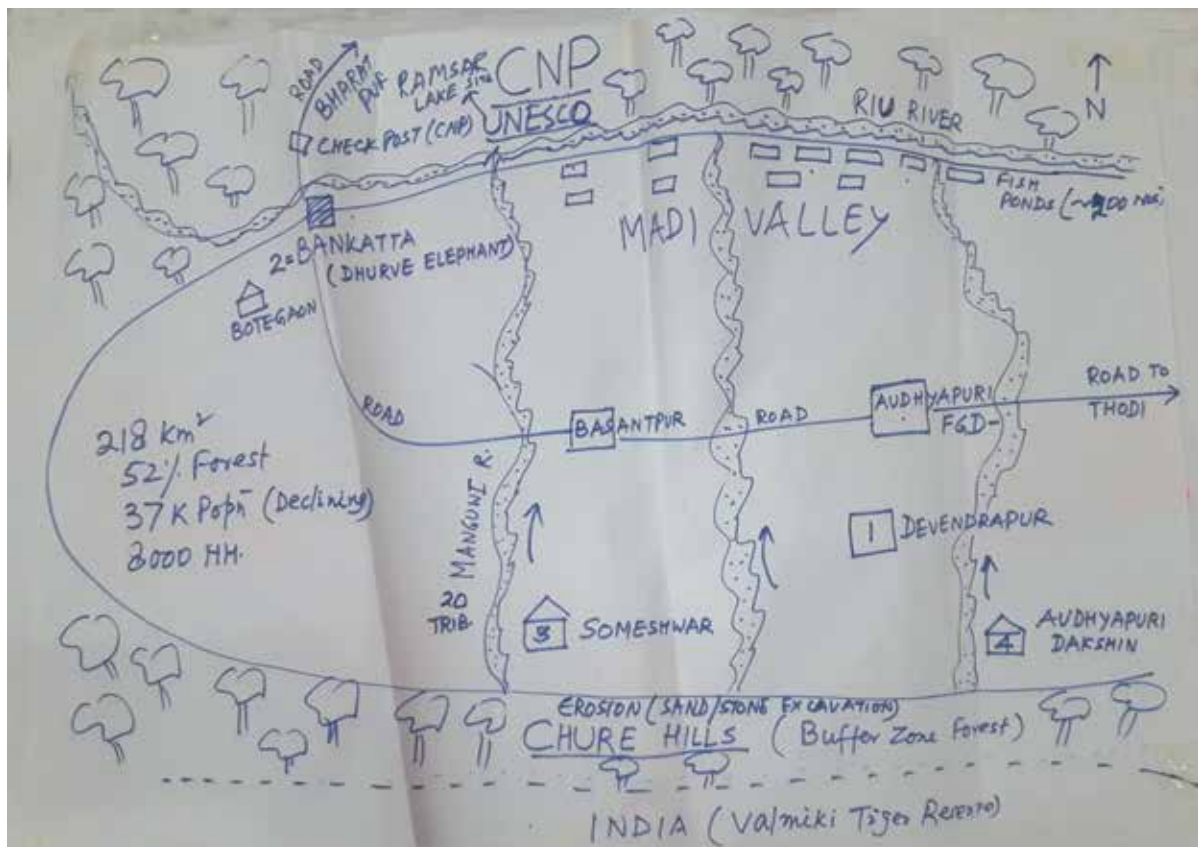 ROAD
BHARAT
RAMSAR
LAKE SITE
CNP
UNESCO
CHECK POST (CNP)
RIU RIVER
N
FISH
PONDS (~200 Nos)
MADI VALLEY
2=BANKATTA
(DHURVE ELEPHANT)
BOTEGAON
ROAD
BASANTPUR
ROAD
AUDHYAPURI
FGD-
ROAD TO
THODI
218 Km²
52% Forest
37K Popn (Declining)
MANGUWI R.
20
TRIB.
1 DEVENDRAPUR
3 SOMESHWAR
4 AUDHYAPURI
DAKSHIN
EROSION (SAND/STONE EXCAVATION)
CHURE HILLS (Buffer Zone Forest)
INDIA (Valmiki Tiger Reserve)